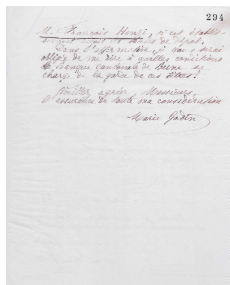 294
M. François Hougi, si ces établis-
Dans l'affirmative, je vous serai
obligé de me dire à quelles conditions
la Banque cantonale de Berne se
charge de la garde de ces titres.
Veuillez agréer, Messieurs,
l'assurance de toute ma considération
Marie Godin